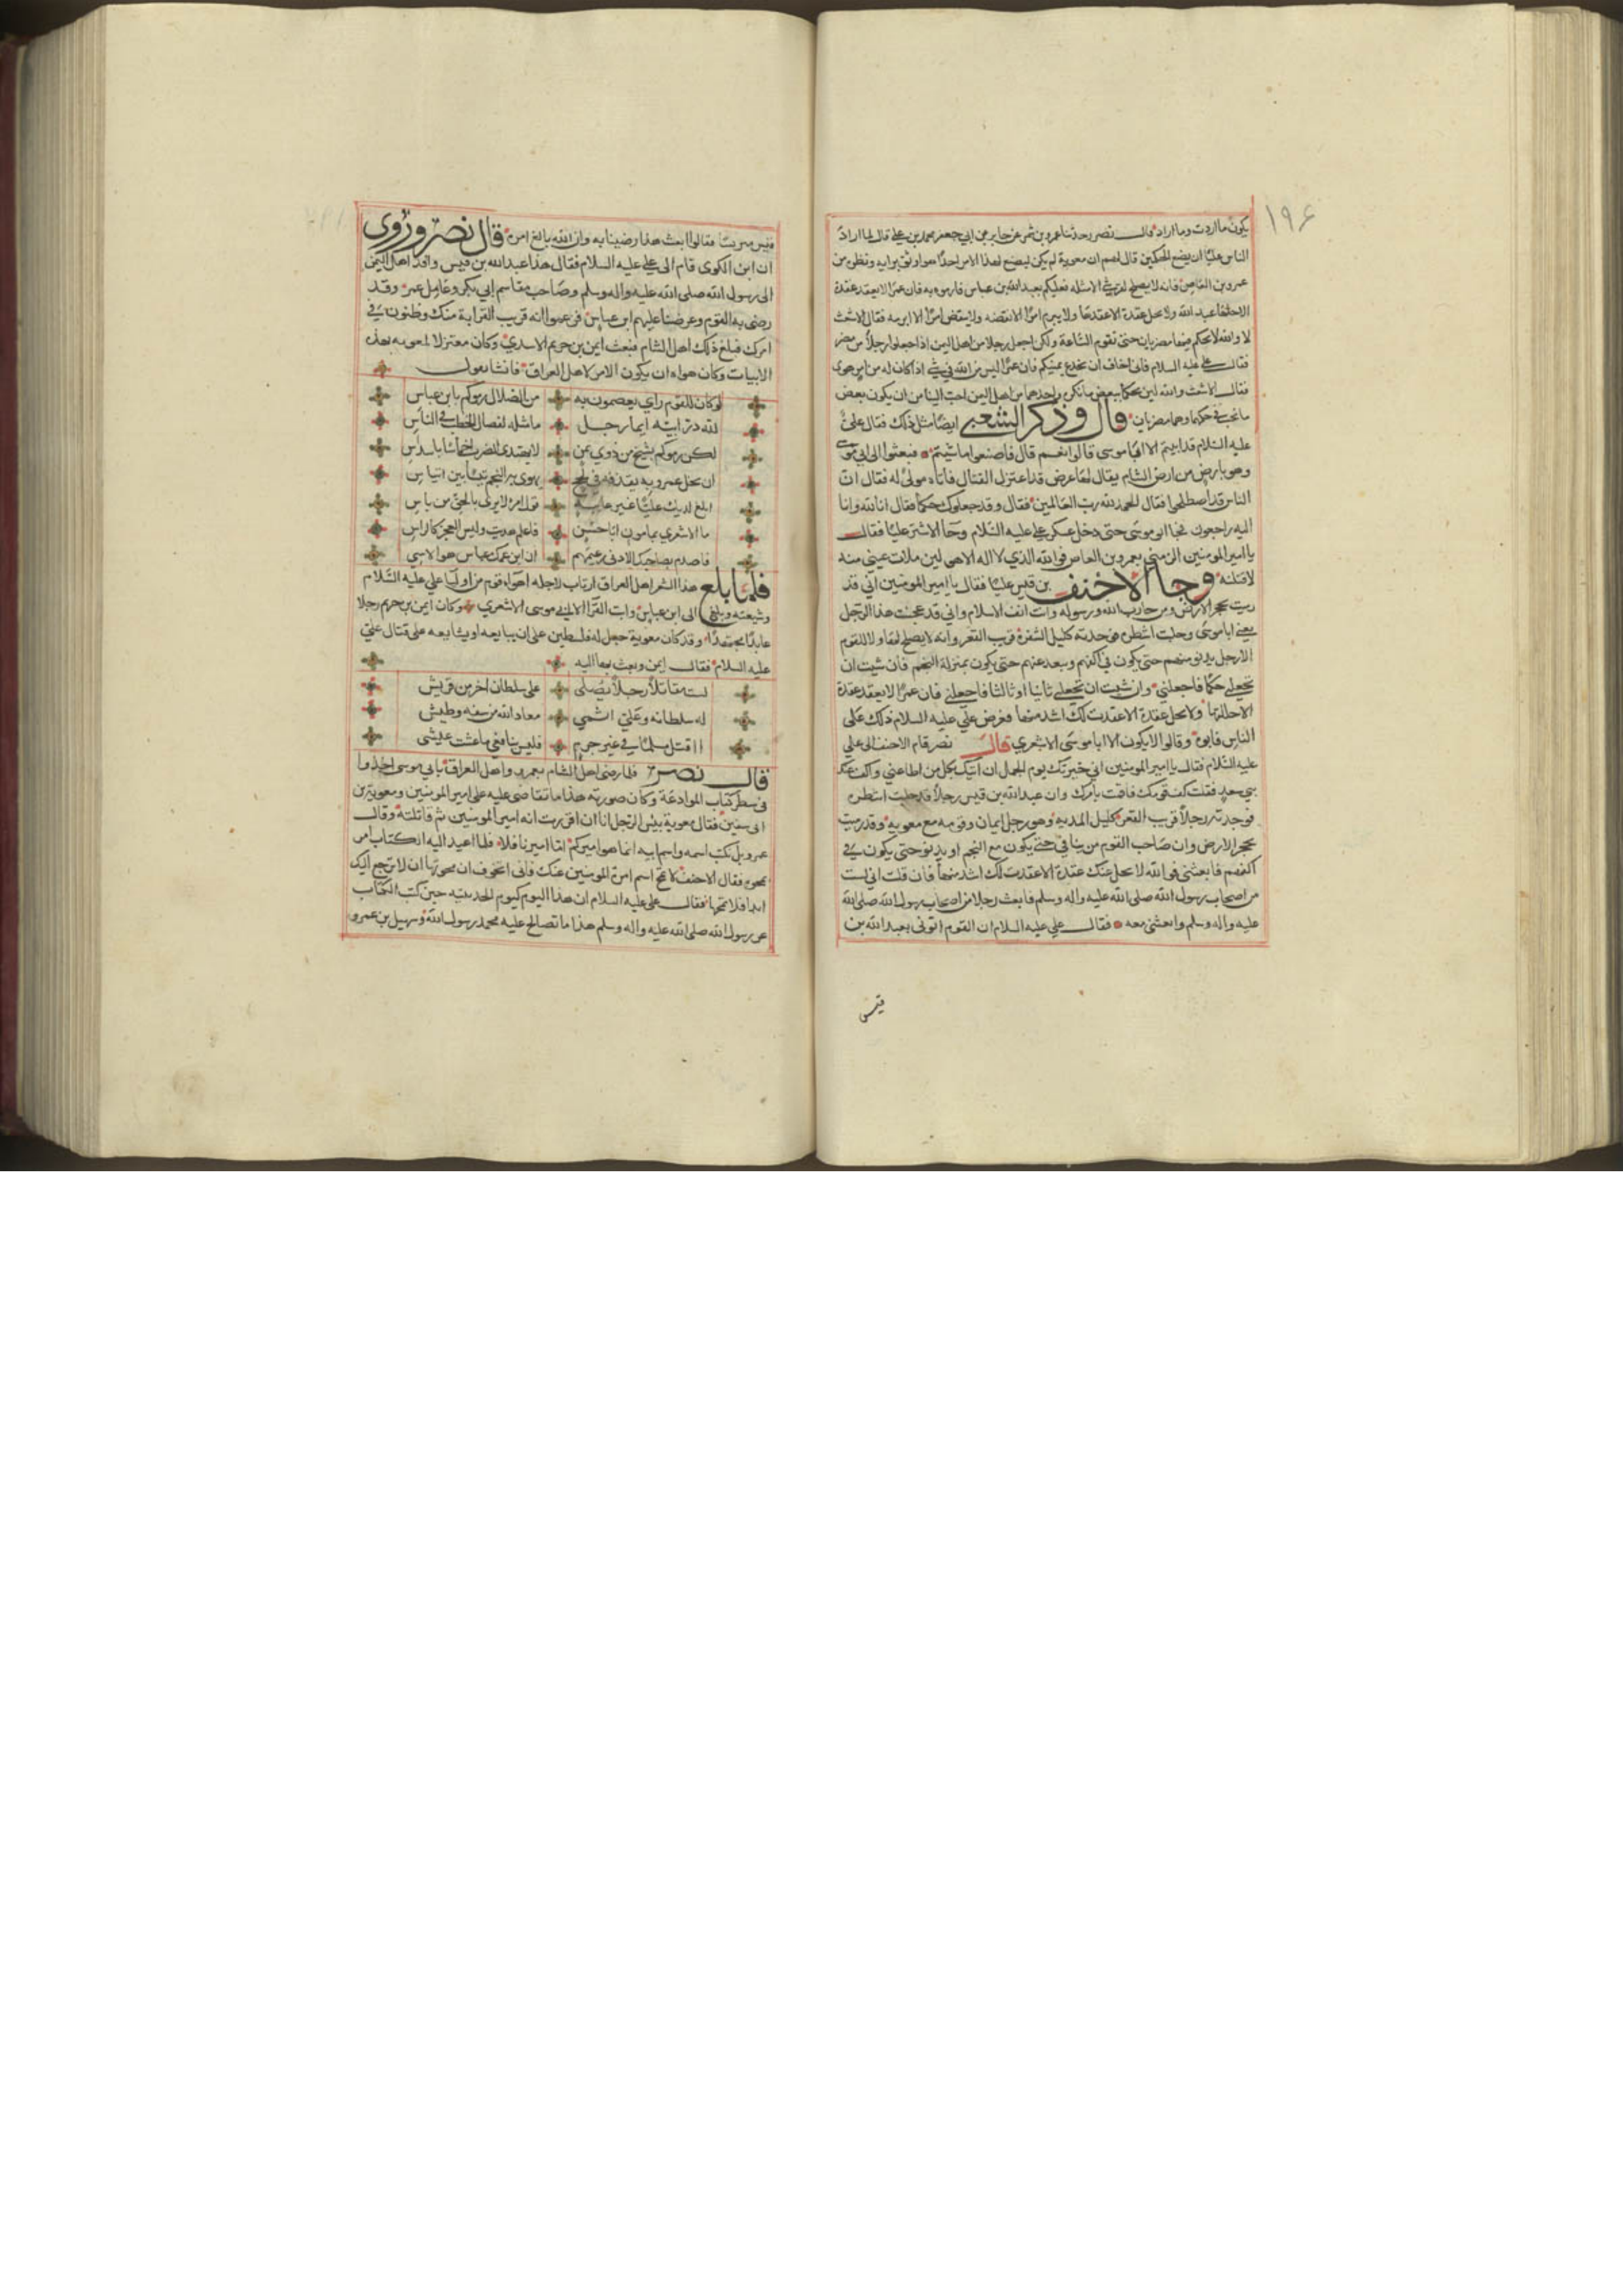 ١٩٤
يكون ما اردت وما اراد قال نصر وحدثنا عمرو بن شمر عن جابر عن ابي جعفر محمد بن علي قال لما اراد
الناس عليا ان يضع الحكمين قال لهم ان معوية لم يكن ليضع لهذا الامر احدا هو اوثق برايه ونظره من
عمرو بن العاص فانه لا يصلح للقرشي الا مثله فعليكم بعبد الله بن عباس فارموه به فان عمرا لا يعقد عقدة
الا حلها عبد الله ولا يحل عقدة الا عقدها ولا يبرم امرا الا نقضه ولا ينقض امرا الا ابرمه فقال الاشعث
لا والله لا يحكم فينا مضريان حتى تقوم الساعة ولكن اجعل رجلا من اهل اليمن اذا جعلوا رجلا من مضر
فقال علي عليه السلام فاني اخاف ان يخدع يمنيكم فان عمرا ليس من الله في شي اذا كان له من امر هوى
فقال الاشعث والله لين يحكما ببعض ما نكره واحدهما من اهل اليمن احب الينا من ان يكون بعض
ما نحب في حكمهما وهما مضريان قال وذكر الشعبي ايضا مثل ذلك فقال علي
عليه السلام قد ابيتم الا ابا موسى قالوا نعم قال فاصنعوا ما شيتم فبعثوا الى ابي موسى
وهو بارض من ارض الشام يقال لها عرض قد اعتزل القتال فاتاه مولى له فقال ان
الناس قد اصطلحوا فقال الحمد لله رب العالمين فقال وقد جعلوك حكما فقال انا لله وانا
اليه راجعون فجا ابو موسى حتى دخل عسكر علي عليه السلام وجا الاشتر عليا فقال
يا امير المومنين الزمني بعمرو بن العاص فوالله الذي لا اله الا هو لين ملات عيني منه
لاقتلنه وجا الاحنف بن قيس عليا فقال يا امير المومنين اني قد
رميت بحجر الارض ومن حارب الله ورسوله وانت انف الاسلام واني قد عجمت هذا الرجل
يعني ابا موسى وحلبت اشطره فوجدته كليل الشفرة قريب القعر وانه لا يصلح لهاولا القوم
الا رجل يدنو منهم حتى يكون في اكفهم ويبعد عنهم حتى يكون بمنزلة النجم فان شيت ان
تجعلني حكما فاجعلني وان شيت ان تجعلني ثانيا او ثالثا فاجعلني فان عمرا لا يعقد عقدة
الا حللتها ولا يحل عقدة الا عقدت لك اشد منها فعرض علي عليه السلام ذلك على
الناس فابوه وقالوا لا يكون الا ابا موسى الاشعري قال نصر قام الاحنف الى علي
عليه السلام فقال يا امير المومنين اني خيرتك يوم الجمل ان اتيك بكل من اطاعني واكف عنك
بني سعد فقلت كف قومك فاقمت بامرك وان عبد الله بن قيس رجل قد حلبت اشطره
فوجدته رجلا قريب القعر كليل المدية وهو رجل يمان وقومه مع معوية وقد رميت
بحجر الارض وان صاحب القوم من يناى حتى يكون مع النجم او يدنو حتى يكون في
اكفهم فابعثني فوالله لا يحل عنك عقدة الا عقدت لك اشد منها فان قلت اني لست
من اصحاب رسول الله صلى الله عليه واله وسلم فابعث رجلا من اصحاب رسول الله صلى الله
عليه واله وسلم وابعثني معه فقال علي عليه السلام ان القوم اتوني بعبد الله بن
قيس
قيس مبرنسا فقالوا ابعث هذا رضينا به وان الله بالغ امره قال نصر وروى
ان ابن الكوى قام الى علي عليه السلام فقال هذا عبد الله بن قيس وافد اهل اليمن
الى رسول الله صلى الله عليه واله وسلم وصاحب مقاسم ابي بكر وعامل عمر وقد
رضي به القوم وعرضنا عليهم ابن عباس فزعموا انه قريب القرابة منك وظنون في
امرك فبلغ ذلك اهل الشام فبعث ايمن بن خريم الاسدي وكان معتزلا لمعويه بهذه
الابيات وكان هواه ان يكون الامر لاهل العراق فانشا يقول
لو كان للقوم راي يعصمون به من الضلال رموكم بابن عباس
لله در ابيه ايما رجل ما مثله لفصال الخطب في الناس
لكن رموكم بشيخ من ذوي يمن لا يهتدي لضرب اخماس باسداس
ان يخل عمرو به يقذفه في لجج يهوي به النجم تيسا بين اتياس
ابلغ لديك عليا غير عاتبه قول امرء لا يرى بالحق من باس
ما الاشعري بمامون ابا حسن فاعلم هديت وليس العجز كالراس
فاصدم بصاحبك الادنى زعيمهم ان ابن عمك عباس هو الاسي
فلما بلغ هذا الشعر اهل العراق ارتاب لاجله اهواء قوم من اوليا علي عليه السلام
وشيعته الى ابن عباس وابت القرا الا ابي موسى الاشعري وكان ايمن بن خريم رجلا
عابدا مجتهدا وقد كان معوية جعل له فلسطين على ان يبايعه او يشايعه على قتال علي
عليه السلام فقال ايمن وبعث بها اليه
لست مقاتلا رجلا يصلى على سلطان اخر من قريش
له سلطانه وعلي اثمي معاذ الله من سفه وطيش
ااقتل مسلما في غير جرم فليس بنافعي ما عشت عيشى
قال نصر فلما رضي اهل الشام بعمرو واهل العراق بابي موسى اخذوا
في سطر كتاب الموادعة وكان صورته هذا ما تقاضى عليه علي امير المومنين ومعوية بن
ابي سفين فقال معوية بيس الرجل انا ان اقررت انه امير المومنين ثم قاتلته وقال
عمرو بل نكتب اسمه واسم ابيه انما هو اميركم اما اميرنا فلا فلما اعيد اليه الكتاب امر
بمحوه فقال الاحنف لا تمح اسم امرة المومنين عنك فاني اتخوف ان محوتها ان لا ترجع اليك
ابدا فلا تمحها فقال علي عليه السلام ان هذا اليوم كيوم الحديبيه حين كتب الكتاب
عن رسول الله صلى الله عليه واله وسلم هذا ما تصالح عليه محمد رسول الله وسهيل بن عمرو